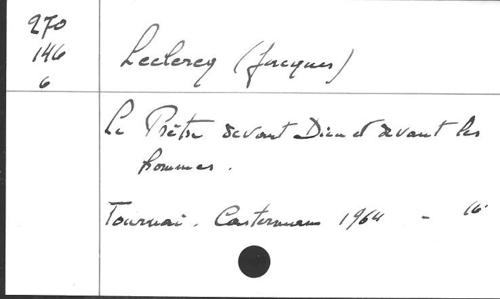 270
146
6
Leclercq (Jacques)
Le Prêtre devant Dieu et devant les
hommes.
Tournai. Casterman 1964 - 16°